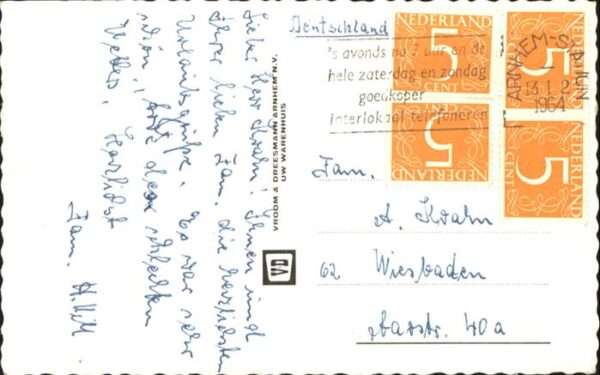 Lieber Herr Krahn! Ihnen und
Ihrer lieben Fam. die herzlichsten
Urlaubsgrüße. Es war sehr
schön, trotz des schlechten
Wetters. Herzlichst
Fam. H.
VROOM & DREESMANN ARNHEM N.V.
UW WARENHUIS
VD
Deutschland
's avonds na 7 uur en de
hele zaterdag en zondag
goedkoper
interlokaal telefoneren
NEDERLAND
5
CENT
NEDERLAND
5
CENT
NEDERLAND
5
CENT
NEDERLAND
5
CENT
ARNHEM-STATION
1964
Fam.
A. Krahn
62 Wiesbaden
40a